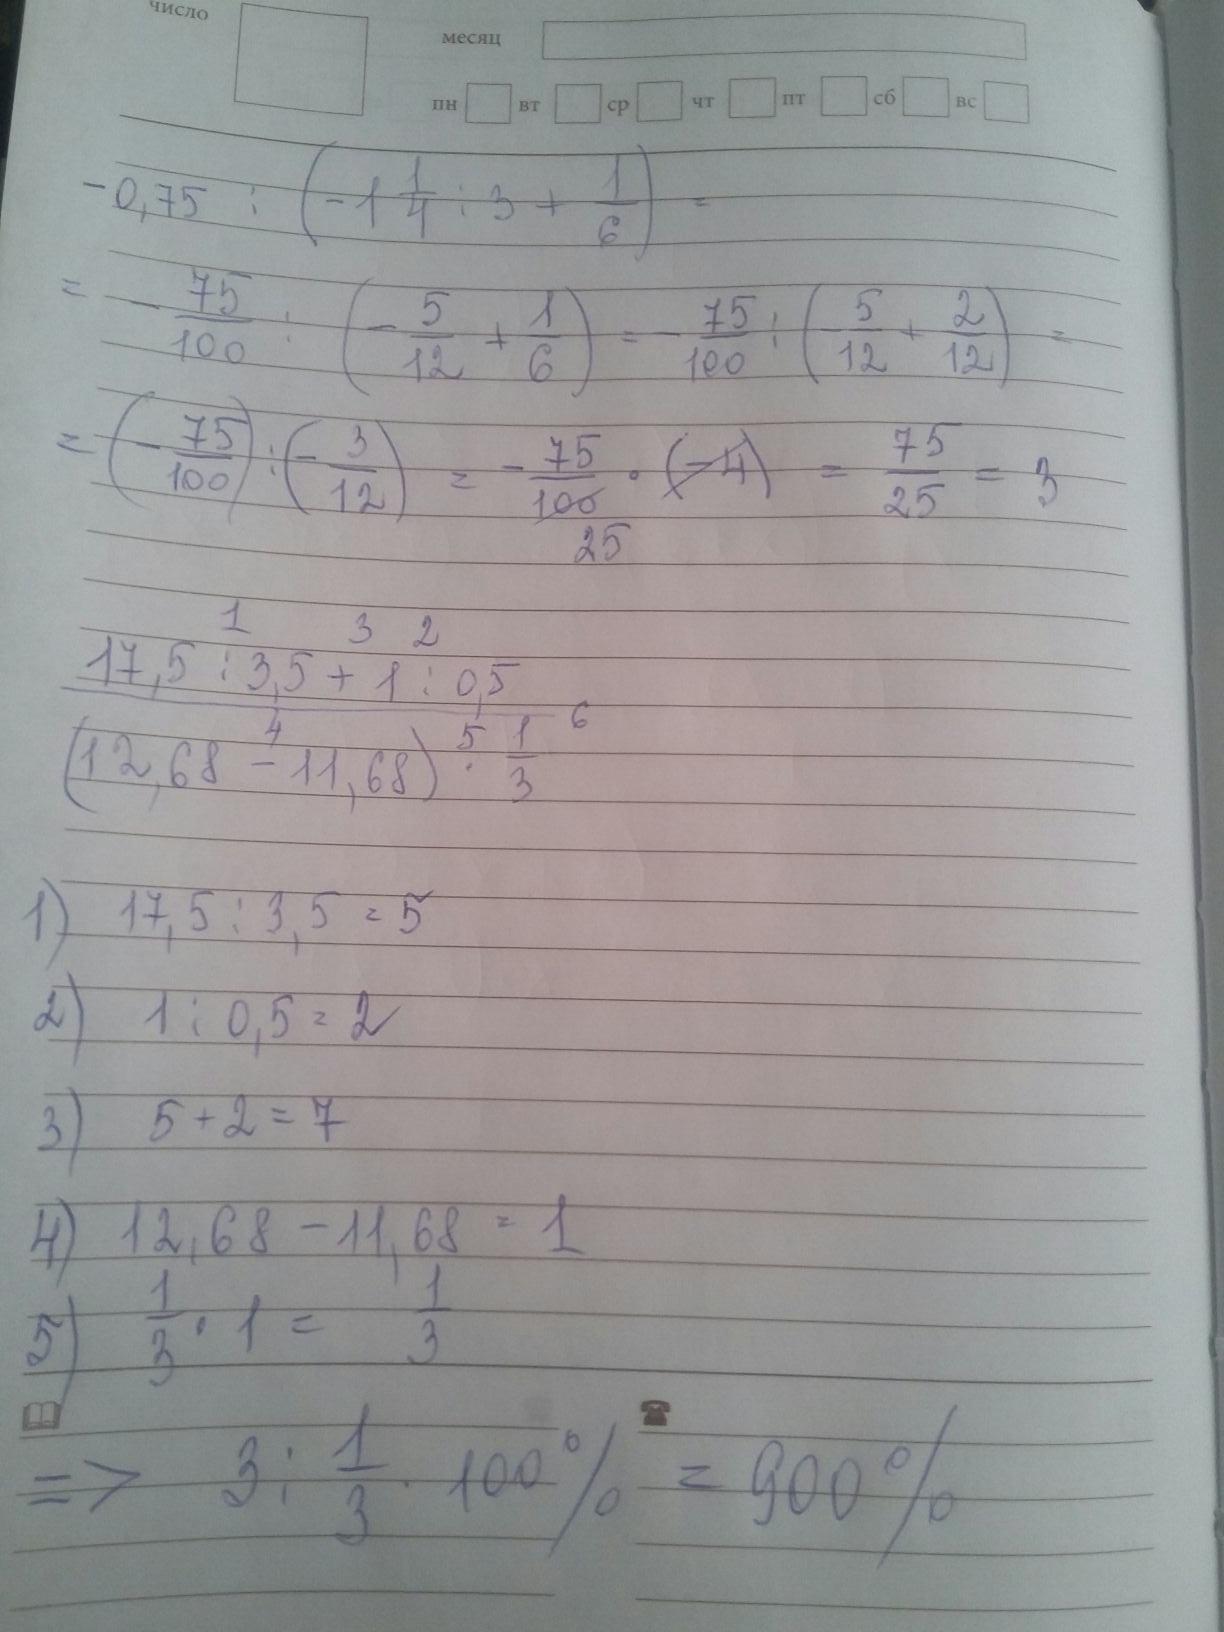 число
месяц
пн вт ср чт пт сб вс
-0,75 : (-1 1/4 : 3 + 1/6) =
= - 75/100 : (- 5/12 + 1/6) = - 75/100 : (- 5/12 + 2/12) =
= (- 75/100) : (- 3/12) = - 75/100 · (-4) = 75/25 = 3
25
1 3 2
17,5 : 3,5 + 1 : 0,5
4 5 6
(12,68 - 11,68) · 1/3
1) 17,5 : 3,5 = 5
2) 1 : 0,5 = 2
3) 5 + 2 = 7
4) 12,68 - 11,68 = 1
5) 1/3 · 1 = 1/3
=> 3 : 1/3 · 100% = 900%